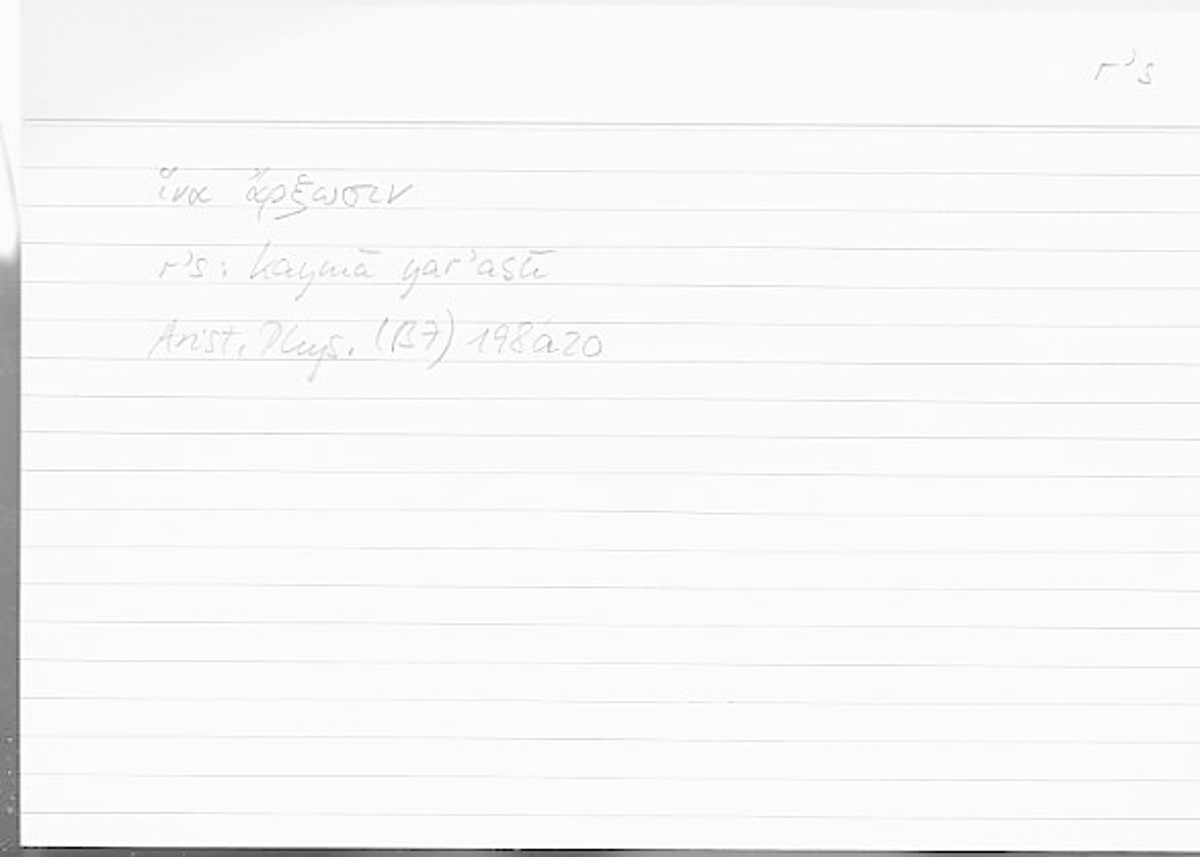 r's
ἵνα ἄρξωσιν
r's: kaymā yar'asū
Arist. Phys. (B7) 198a20